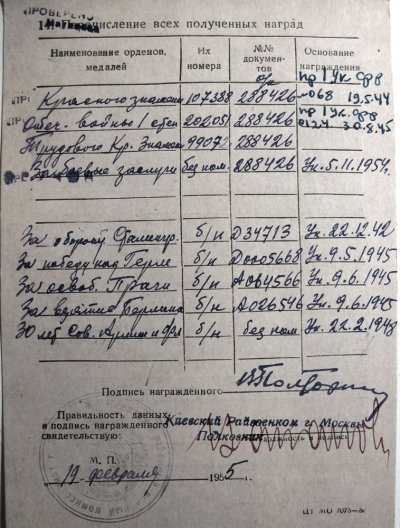 ПРОВЕРЕНО
14. Перечисление всех полученных наград
Наименование орденов, медалей Их номера №№ документов Основание награждения
о/к пр 1 Ук. фр
Красного знамени 107388 288426 №068 19.5.44
пр 1 Ук. фр
Отеч. войны I степ 202051 288426 0124 30.8.45
Трудового Кр. Знамени 9907 288426
За боевые заслуги без ном. 288426 Ук. 5.11.1954г.
За оборону Сталингр. б/н Д34713 Ук. 22.12.42
За победу над Герм б/н Ук. 9.5.1945
За освоб. Праги б/н Ук. 9.6.1945
За взятие Берлина б/н А026546 Ук. 9.6.1945
30 лет Сов. Армии и фл. б/н без ном. Ук. 22.2.1948
Подпись награжденного
Правильность данных
и подпись награжденного
свидетельствую:
Киевский Райвоенком г. Москвы
Полковник
должность и подпись
М. П.
19 февраля 1955 г.